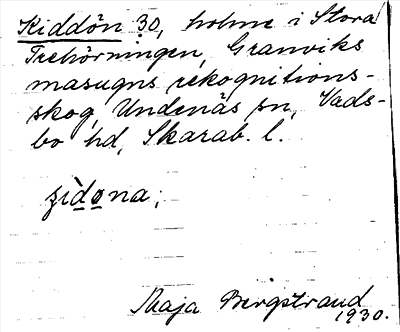 Kiddön 30, holme i Stora
Trehörningen, Granviks
masugns rekognitions-
skog, Undenäs sn, Vads-
bo hd, Skarab. l.
zìdona;
Maja Bergstrand
1930.